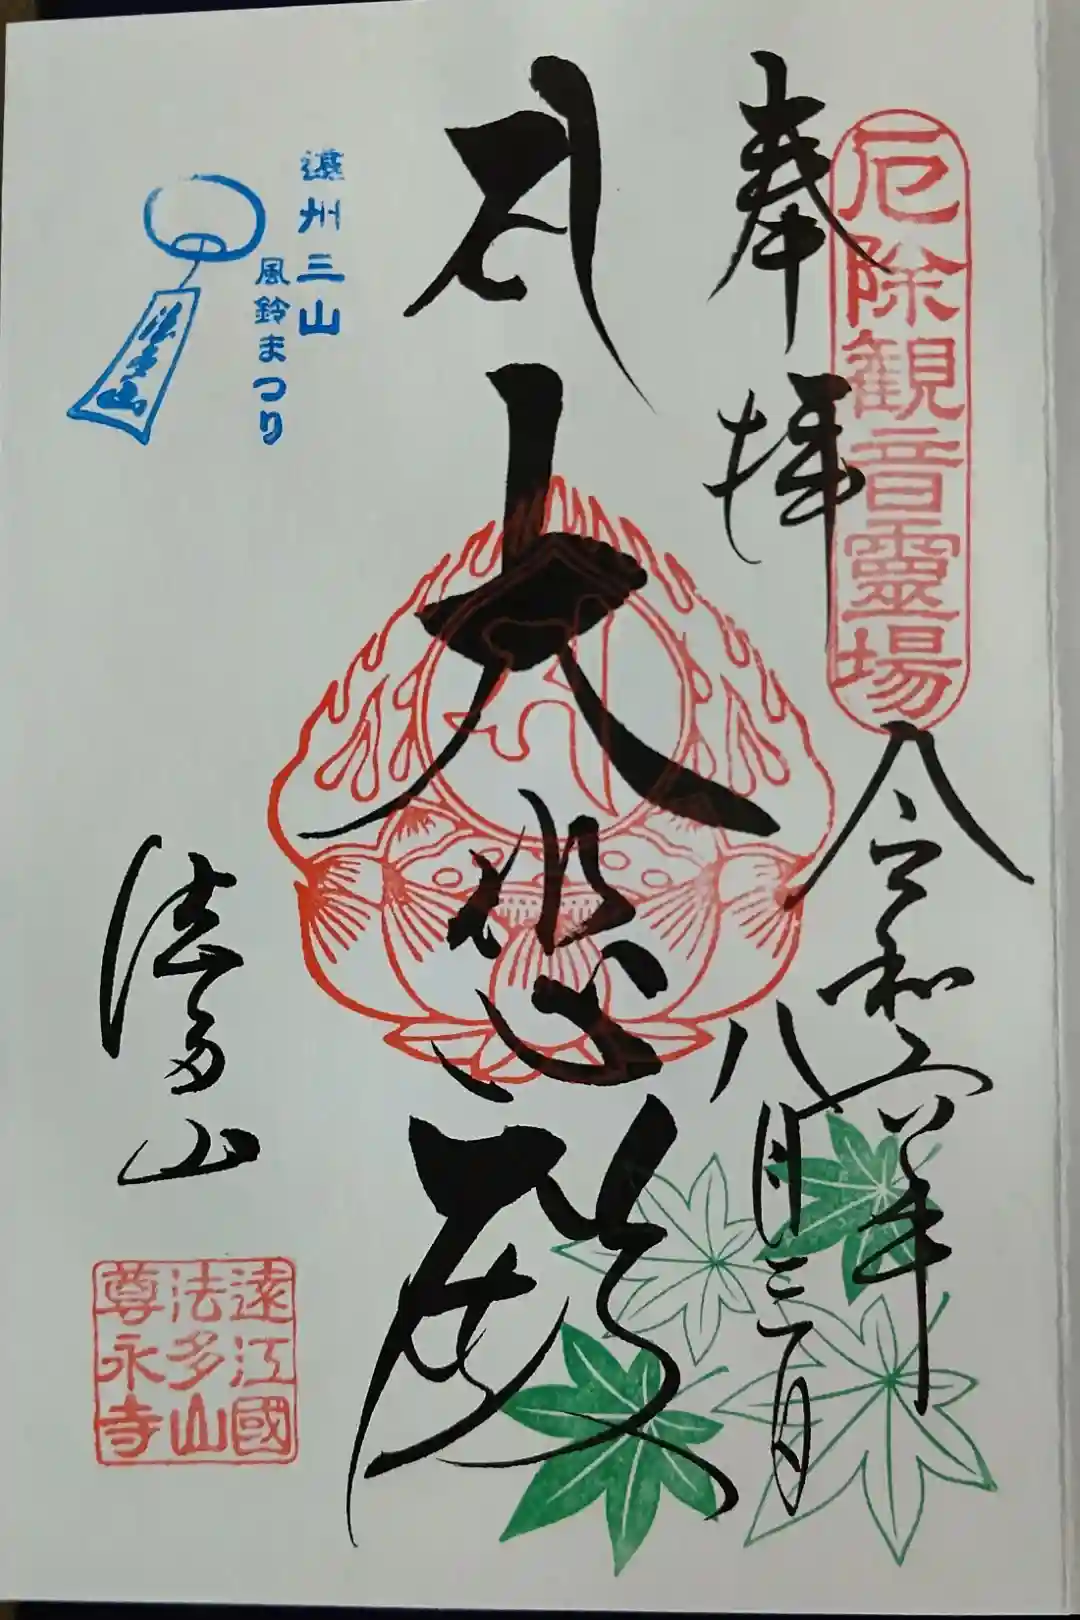 厄除観音霊場
奉拝
令和六年
八月三日
大悲殿
遠州三山
風鈴まつり
法多山
法多山
遠江國
法多山
尊永寺